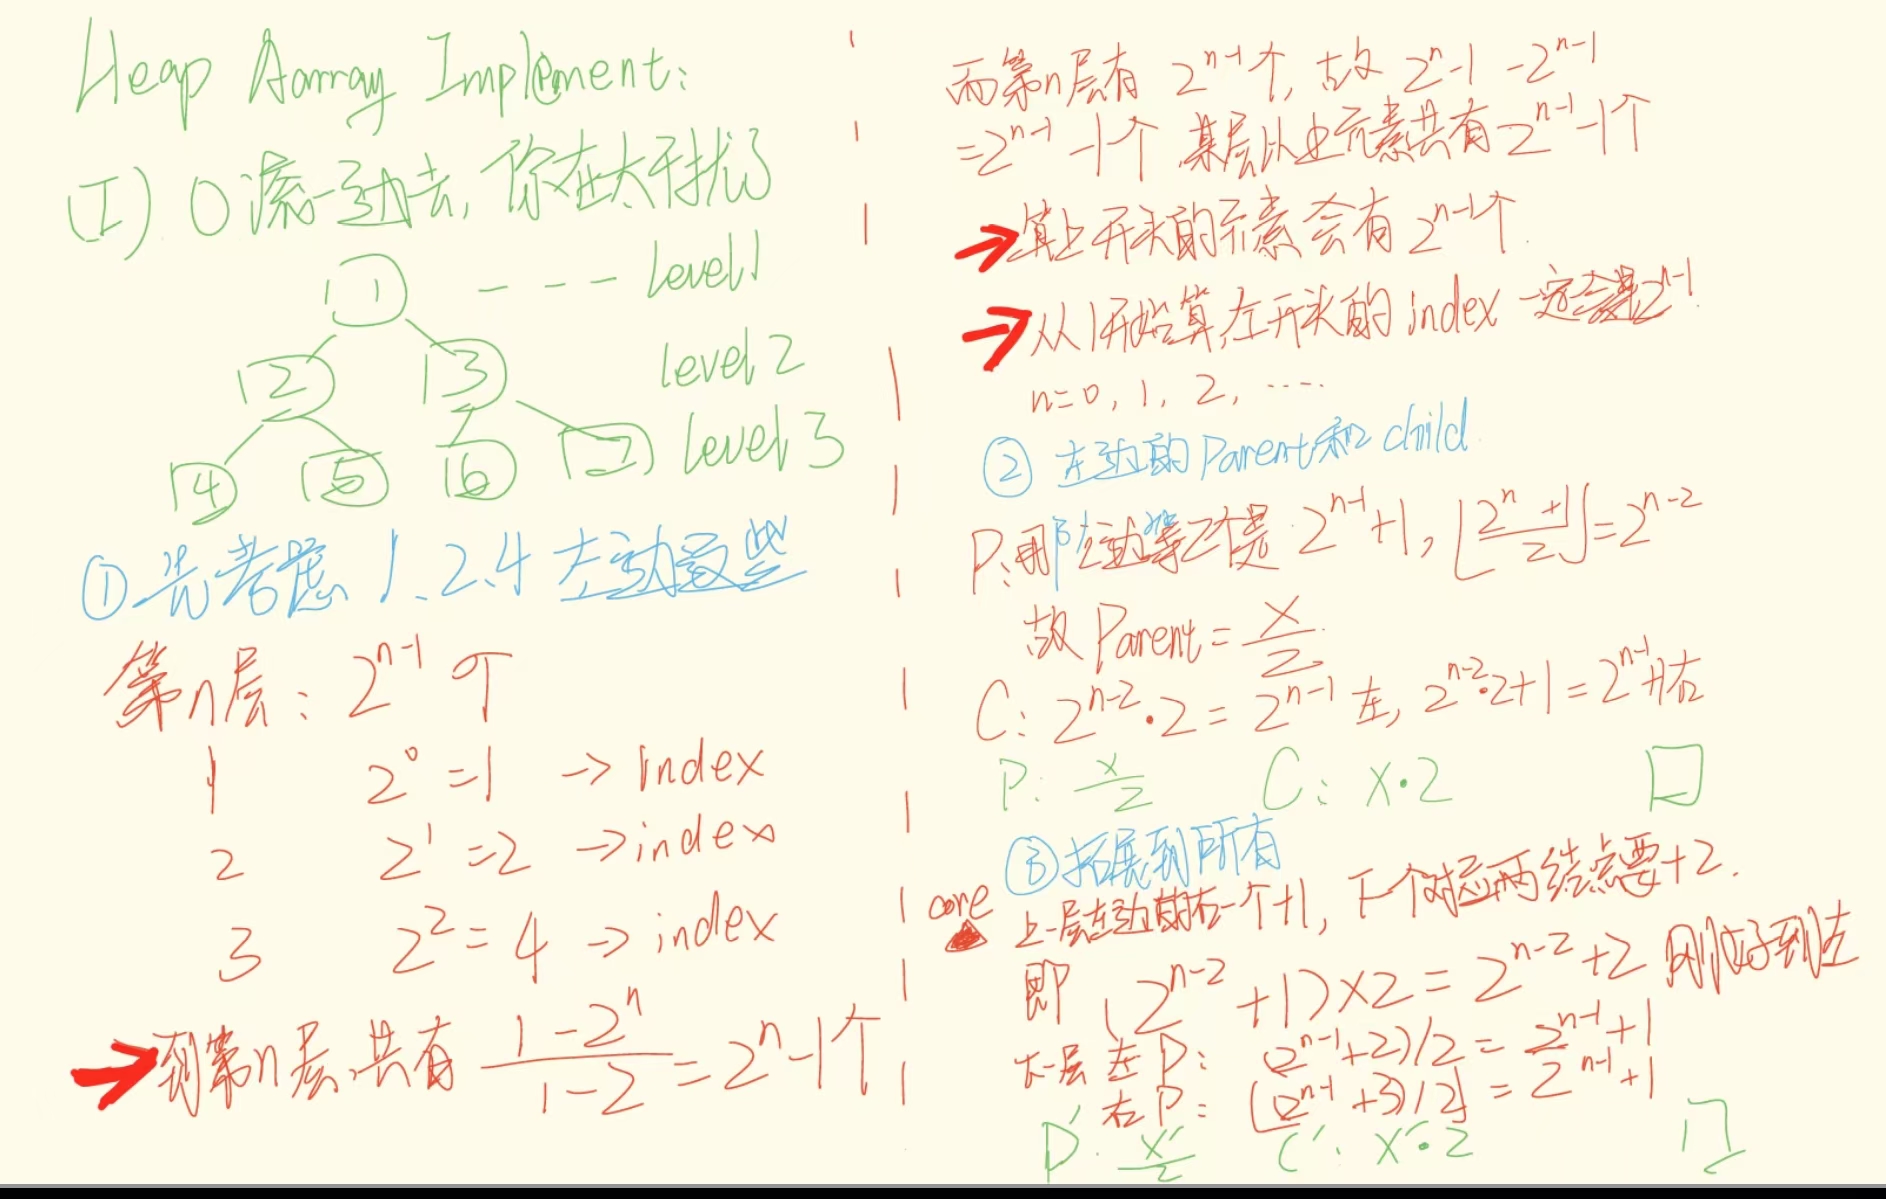 Heap Aarray Implement:
(I) 0滚一边去, 你在太干扰了
1 --- level 1
2 3 level 2
4 5 6 7 level 3
① 先考虑 1、2、4 左边这些
第n层: 2^{n-1} 个
1 2^0 =1 -> Index
2 2^1 =2 -> index
3 2^2 = 4 -> index
到第n层,共有 \frac{1-2^n}{1-2} = 2^n-1个
而第n层有 2^{n-1}个, 故 2^n-1 -2^{n-1}
=2^{n-1} -1个 某层以上元素共有2^{n-1}-1个
算上开头的元素会有 2^{n-1}个.
从1开始算,左开头的 index 一定会是2^{n-1}.
n=0, 1, 2, ....
② 左边的 Parent 和 child
P: 左边第2个是 2^{n-1}+1, ⌊\frac{2^n +1}{2}⌋=2^{n-2}
故 Parent = \frac{x}{2}.
C: 2^{n-2}·2 = 2^{n-1} 左, 2^{n-2}·2+1 = 2^{n-1}+1右
P: \frac{x}{2} C: x·2 □
③ 拓展到所有
core 上一层左边的右一个+1, 下个对应两结点要+2.
即 (2^{n-2} +1)×2 = 2^{n-2}+2 刚好到左
下一层 左 P: (2^{n-1}+2)/2 = 2^{n-1}+1
右 P: [(2^{n-1} +3)/2] = 2^{n-1}+1
P': \frac{x'}{2} C': x'·2 □